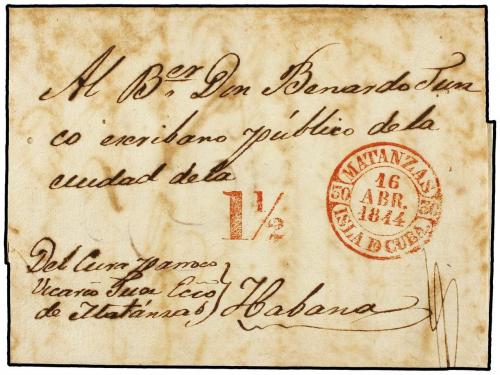 Al B.er Don Benardo Jun
co escribano público de la
ciudad de la
1½
MATANZAS
16
ABR.
1844
ISLA D CUBA
Del Cura parroco
Vicario Juez Ecco
de Matánzas
Habana